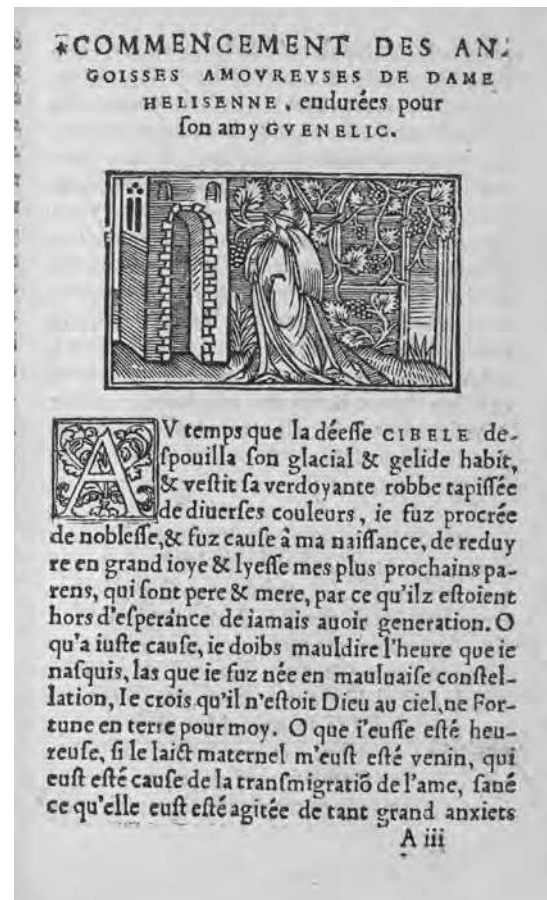 *COMMENCEMENT DES AN-
GOISSES AMOVREVSES DE DAME
HELISENNE, endurées pour
ſon amy GVENELIC.
AV temps que la déeſſe CIBELE de-
ſpouilla ſon glacial & gelide habit,
& veſtit ſa verdoyante robbe tapiſſée
de diuerſes couleurs, ie fuz procrée
de nobleſſe, & fuz cauſe à ma naiſſance, de reduy
re en grand ioye & lyeſſe mes plus prochains pa-
rens, qui ſont pere & mere, par ce qu'ilz eſtoient
hors d'eſperánce de iamais auoir generation. O
qu'a iuſte cauſe, ie doibs mauldire l'heure que ie
naſquis, las que ie fuz née en mauluaiſe conſtel-
lation, Ie crois qu'il n'eſtoit Dieu au ciel, ne For-
tune en terre pour moy. O que i'euſſe eſté heu-
reuſe, ſi le laict maternel m'euſt eſté venin, qui
euſt eſté cauſe de la tranſmigratiõ de l'ame, ſané
ce qu'elle euſt eſté agitée de tant grand anxiets
A iii